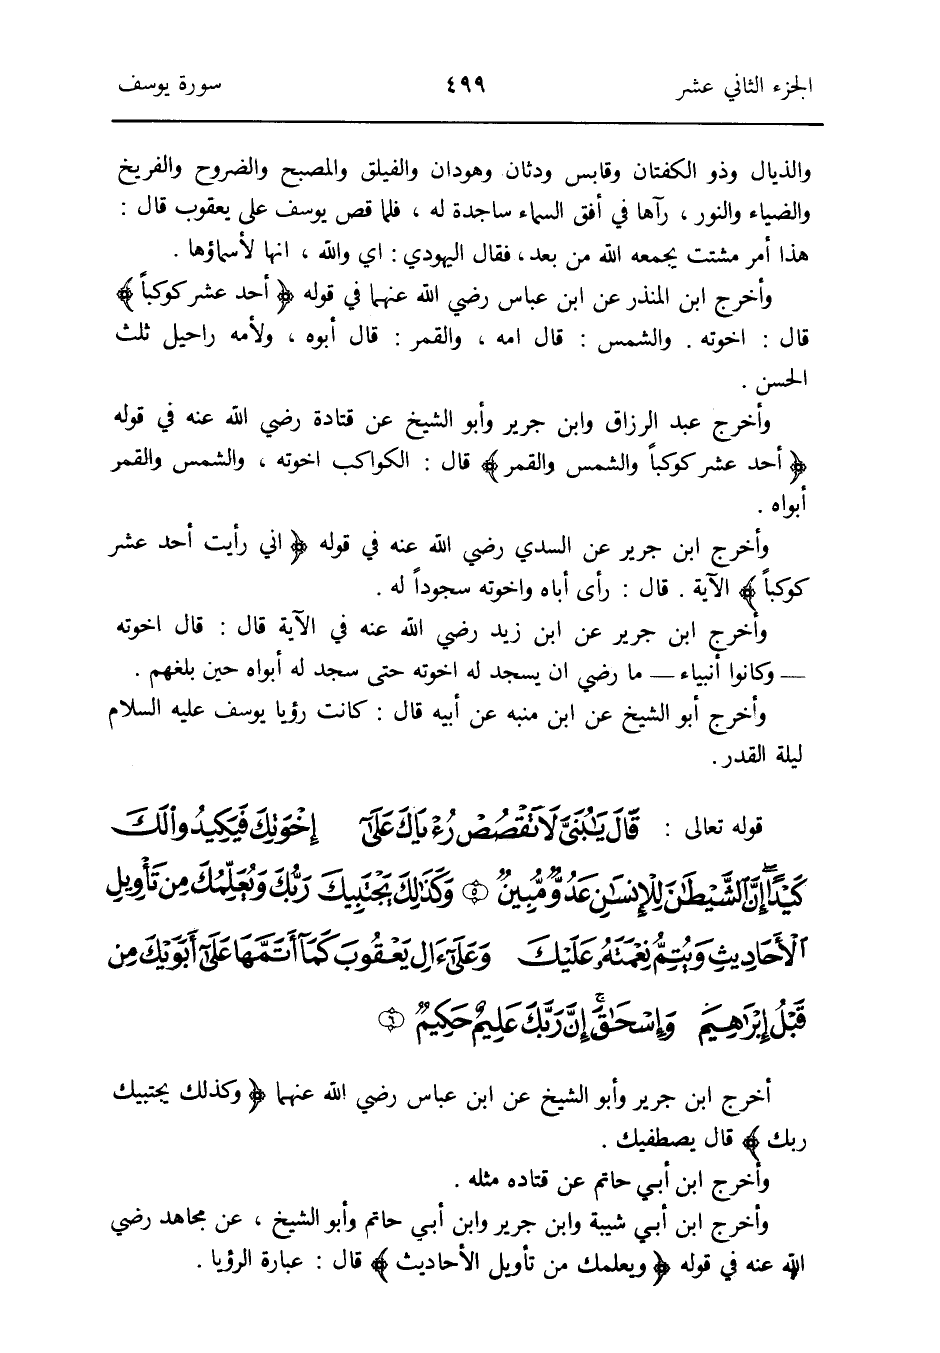 الجزء الثاني عشر ٤٩٩ سورة يوسف
والذيال وذو الكفتان وقابس ودثان وهودان والفيلق والمصبح والضروح والفريخ
والضياء والنور ، رآها في أفق السماء ساجدة له ، فلما قص يوسف على يعقوب قال :
هذا أمر مشتت يجمعه الله من بعد ، فقال اليهودي : اي والله ، انها لأسماؤها .
وأخرج ابن المنذر عن ابن عباس رضي الله عنهما في قوله ﴿ أحد عشر كوكباً ﴾
قال : اخوته . والشمس : قال امه ، والقمر : قال أبوه ، ولأمه راحيل ثلث
الحسن .
وأخرج عبد الرزاق وابن جرير وأبو الشيخ عن قتادة رضي الله عنه في قوله
﴿ أحد عشر كوكباً والشمس والقمر ﴾ قال : الكواكب اخوته ، والشمس والقمر
أبواه .
وأخرج ابن جرير عن السدي رضي الله عنه في قوله ﴿ اني رأيت أحد عشر
كوكباً ﴾ الآية . قال : رأى أباه واخوته سجوداً له .
وأخرج ابن جرير عن ابن زيد رضي الله عنه في الآية قال : قال اخوته
— وكانوا أنبياء — ما رضي ان يسجد له اخوته حتى سجد له أبواه حين بلغهم .
وأخرج أبو الشيخ عن ابن منبه عن أبيه قال : كانت رؤيا يوسف عليه السلام
ليلة القدر .
قوله تعالى : قَالَ يَٰبُنَيَّ لَا تَقۡصُصۡ رُءۡيَاكَ عَلَىٰٓ إِخۡوَتِكَ فَيَكِيدُواْ لَكَ
كَيۡدًاۖ إِنَّ ٱلشَّيۡطَٰنَ لِلۡإِنسَٰنِ عَدُوّٞ مُّبِينٞ ۝٥ وَكَذَٰلِكَ يَجۡتَبِيكَ رَبُّكَ وَيُعَلِّمُكَ مِن تَأۡوِيلِ
ٱلۡأَحَادِيثِ وَيُتِمُّ نِعۡمَتَهُۥ عَلَيۡكَ وَعَلَىٰٓ ءَالِ يَعۡقُوبَ كَمَآ أَتَمَّهَا عَلَىٰٓ أَبَوَيۡكَ مِن
قَبۡلُ إِبۡرَٰهِيمَ وَإِسۡحَٰقَۚ إِنَّ رَبَّكَ عَلِيمٌ حَكِيمٞ ۝٦
أخرج ابن جرير وأبو الشيخ عن ابن عباس رضي الله عنهما ﴿ وكذلك يجتبيك
ربك ﴾ قال يصطفيك .
وأخرج ابن أبي حاتم عن قتاده مثله .
وأخرج ابن أبي شيبة وابن جرير وابن أبي حاتم وأبو الشيخ ، عن مجاهد رضي
الله عنه في قوله ﴿ ويعلمك من تأويل الأحاديث ﴾ قال : عبارة الرؤيا .